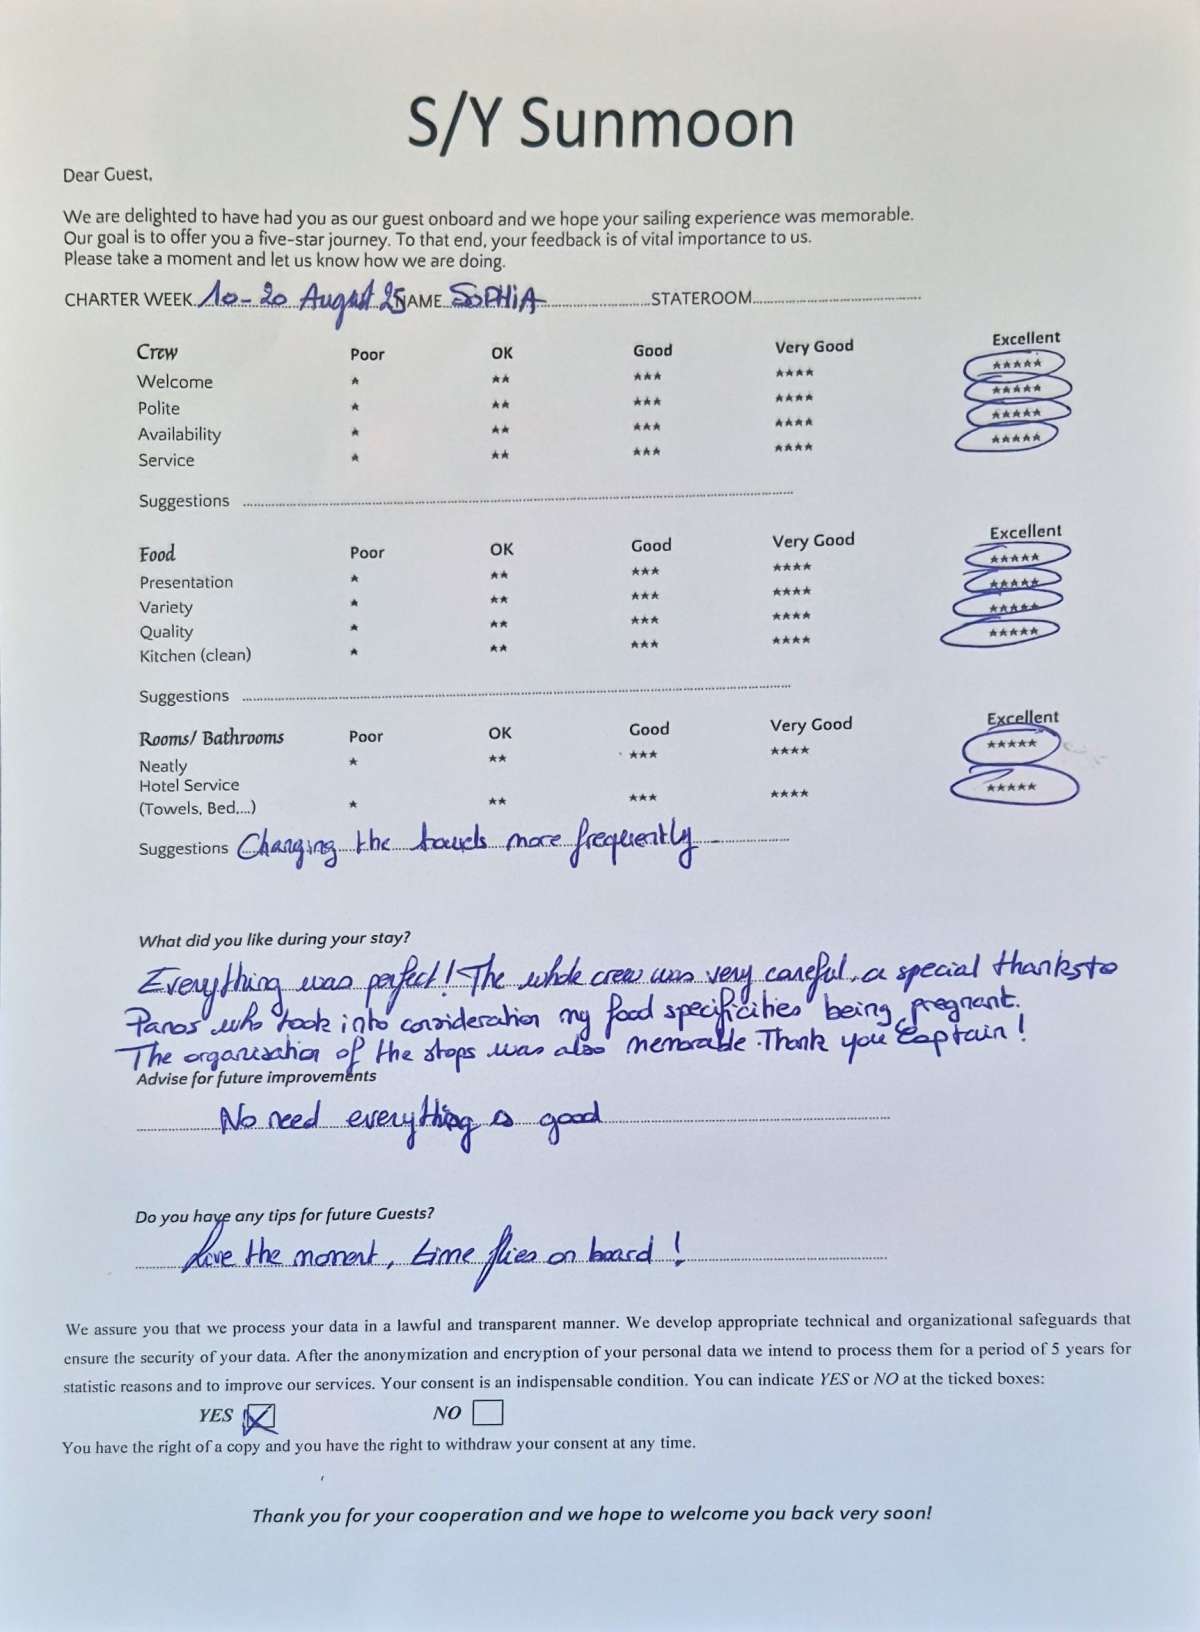 S/Y Sunmoon
Dear Guest,
We are delighted to have had you as our guest onboard and we hope your sailing experience was memorable.
Our goal is to offer you a five-star journey. To that end, your feedback is of vital importance to us.
Please take a moment and let us know how we are doing.
CHARTER WEEK 10-20 August 25 NAME SOPHiA STATEROOM
Crew Poor OK Good Very Good Excellent
Welcome ★ ★★ ★★★ ★★★★ ★★★★★
Polite ★ ★★ ★★★ ★★★★ ★★★★★
Availability ★ ★★ ★★★ ★★★★ ★★★★★
Service ★ ★★ ★★★ ★★★★ ★★★★★
Suggestions
Food Poor OK Good Very Good Excellent
Presentation ★ ★★ ★★★ ★★★★ ★★★★★
Variety ★ ★★ ★★★ ★★★★ ★★★★★
Quality ★ ★★ ★★★ ★★★★ ★★★★★
Kitchen (clean) ★ ★★ ★★★ ★★★★ ★★★★★
Suggestions
Rooms/ Bathrooms Poor OK Good Very Good Excellent
Neatly ★ ★★ ★★★ ★★★★ ★★★★★
Hotel Service
(Towels, Bed,...) ★ ★★ ★★★ ★★★★ ★★★★★
Suggestions Changing the towels more frequently
What did you like during your stay?
Everything was perfect! The whole crew was very careful, a special thanks to
Panos who took into consideration my food specificities being pregnant.
The organization of the stops was also memorable. Thank you Captain!
Advise for future improvements
No need everything is good
Do you have any tips for future Guests?
Live the moment, time flies on board!
We assure you that we process your data in a lawful and transparent manner. We develop appropriate technical and organizational safeguards that
ensure the security of your data. After the anonymization and encryption of your personal data we intend to process them for a period of 5 years for
statistic reasons and to improve our services. Your consent is an indispensable condition. You can indicate YES or NO at the ticked boxes:
YES ☒ NO ☐
You have the right of a copy and you have the right to withdraw your consent at any time.
Thank you for your cooperation and we hope to welcome you back very soon!